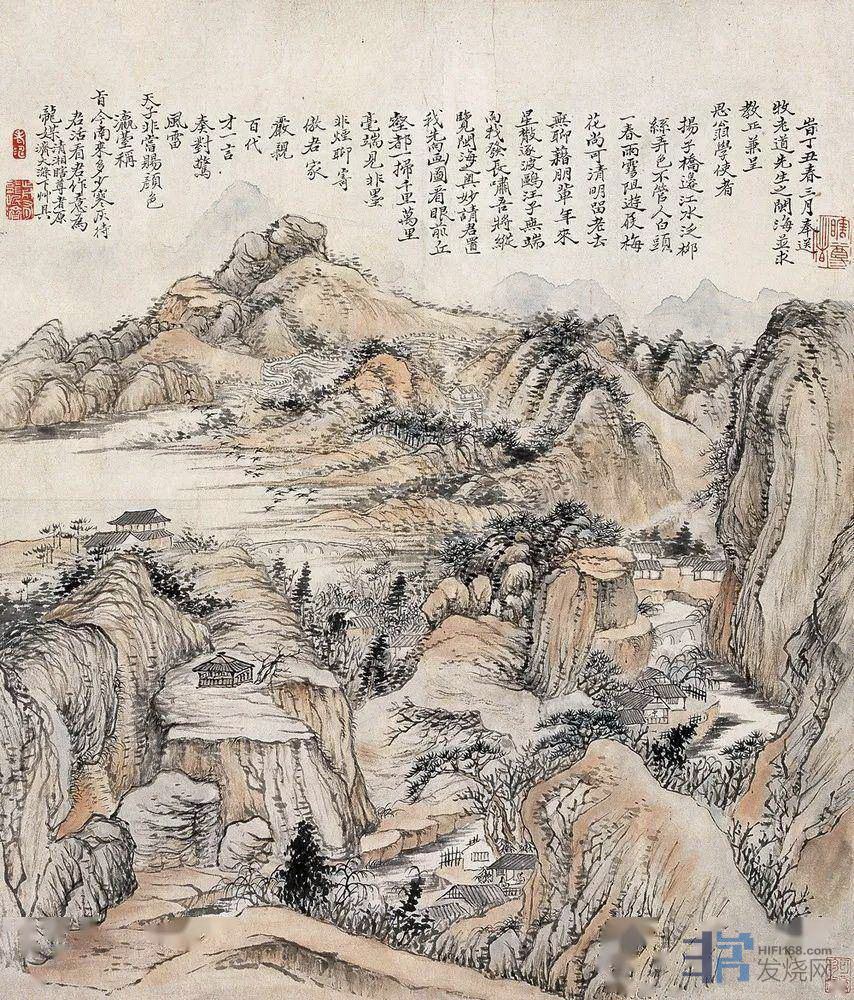 旹丁丑春三月奉送
牧老道先生之閩海並求
教正兼呈
思翁學使者
揚子橋邊江水泛柳
絲弄色不管人白頭
一春雨雪阻遊屐梅
花尚可清明留老去
無聊藉朋輩年來
星散逐波鷗汪子無端
向我發長嘯吾將縱
覽閩海奧妙請君置
我為画圖看眼前丘
壑都一掃千里萬里
毫端見非墨
非煙聊寄
傲君家
嚴親
百代
才一言
奏對驚
風雷
天子非當賜顏色
瀛臺稱
旨今南來多少寒灰待
君活看君作意為
龍媒 清湘瞎尊者原
濟大滌下艸具
非常
HIFI168.com
发烧网